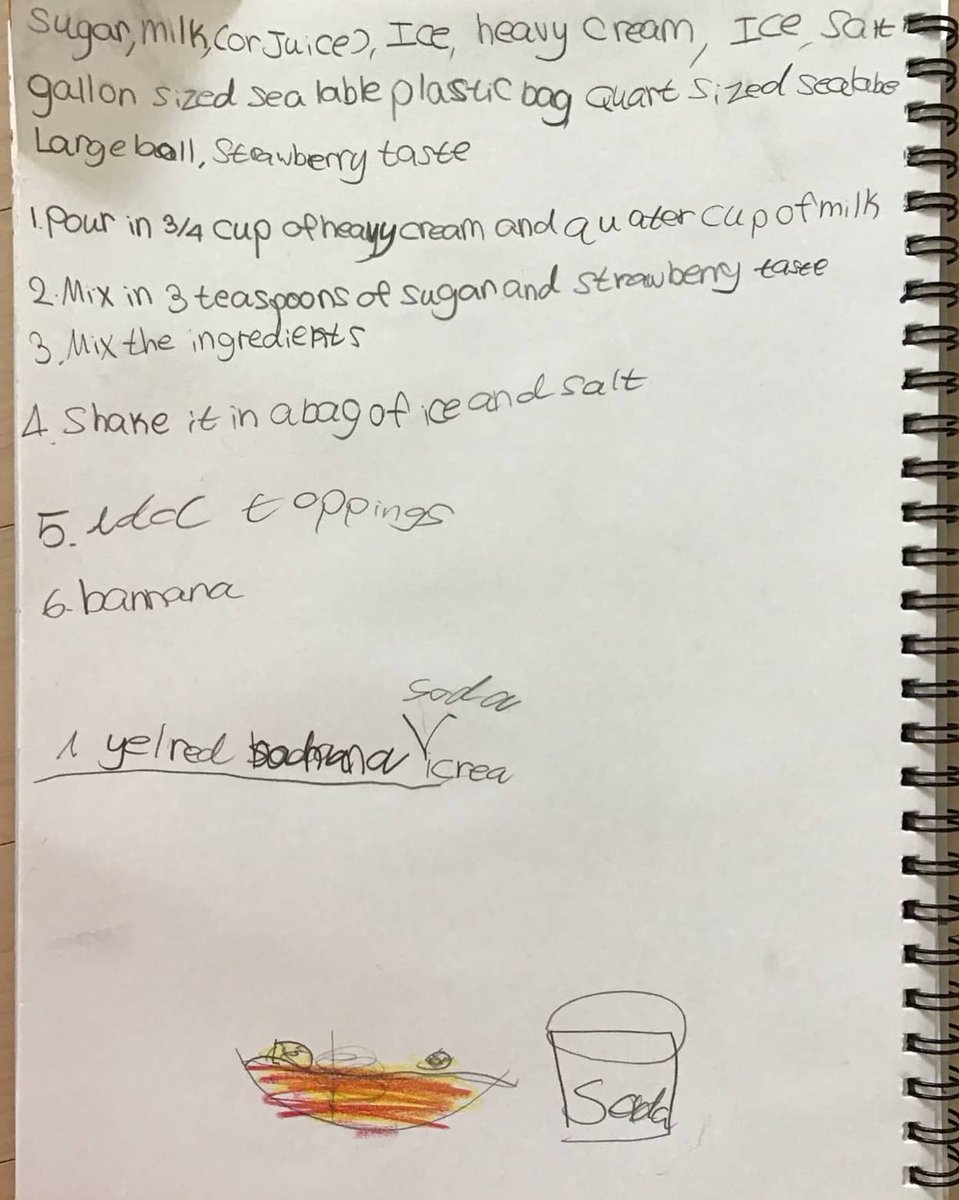 Sugar, milk, (or Juice), Ice, heavy cream, Ice, Salt
gallon sized sealable plastic bag quart sized sealabe
Large ball, Strawberry taste
1. Pour in 3/4 cup of heavy cream and quater cup of milk
2. Mix in 3 teaspoons of sugar and strawberry taste
3. Mix the ingredients
4. Shake it in a bag of ice and salt
5. toppings
6. bannana
soda
1 yel red icrea
Soda